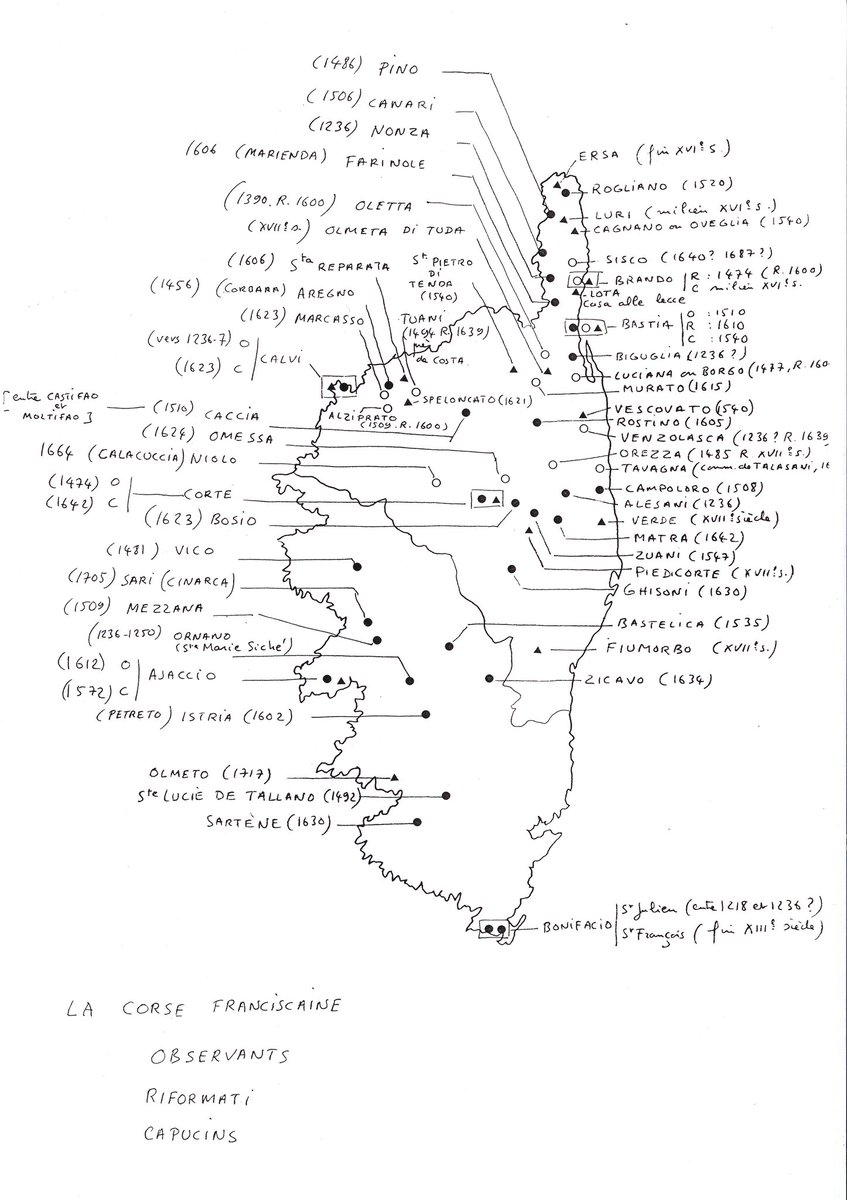 (1486) PINO
(1506) CANARI
(1236) NONZA
1606 (MARIENDA) FARINOLE
(1390. R. 1600) OLETTA
(XVIIe s.) OLMETA DI TUDA
(1606) Sta REPARATA
St. PIETRO
DI
TENDA
(1540)
(1456) (CORBARA) AREGNO
(1623) MARCASSO
TUANI
(1494 R. 1639)
près
da COSTA
(vers 1236-7) O
(1623) C
CALVI
ALZIPRATO
(1509. R. 1600)
SPELONCATO (1621)
[entre CASTIFAO
et
MOLTIFAO]
(1510) CACCIA
(1624) OMESSA
1664 (CALACUCCIA) NIOLO
(1474) O
(1642) C
CORTE
(1623) BOSIO
(1481) VICO
(1705) SARI (CINARCA)
(1509) MEZZANA
(1236-1250) ORNANO
(Ste Marie Siché)
(1612) O
(1572) C
AJACCIO
(PETRETO) ISTRIA (1602)
OLMETO (1717)
Ste LUCIE DE TALLANO (1492)
SARTÈNE (1630)
ERSA (fin XVIe s.)
ROGLIANO (1520)
LURI (milieu XVIe s.)
CAGNANO ou OVEGLIA (1540)
SISCO (1640? 1687?)
BRANDO
R : 1474 (R. 1600)
C milieu XVIe s.
LOTA
Casa alle lecce
BASTIA
O : 1510
R : 1610
C : 1540
BIGUGLIA (1236?)
LUCIANA ou BORGO (1477, R. 160
MURATO (1615)
VESCOVATO (1540)
ROSTINO (1605)
VENZOLASCA (1236? R. 1639
OREZZA (1485 R XVIIe s.)
TAVAGNA (comm. de TALASANI, 16
CAMPOLORO (1508)
ALESANI (1236)
VERDE (XVIIe siècle)
MATRA (1642)
ZUANI (1547)
PIEDICORTE (XVIIe s.)
GHISONI (1630)
BASTELICA (1535)
FIUMORBO (XVIIe s.)
ZICAVO (1634)
BONIFACIO
St Julien (entre 1218 et 1236?)
St François (fin XIIIe siècle)
LA CORSE FRANCISCAINE
OBSERVANTS
RIFORMATI
CAPUCINS